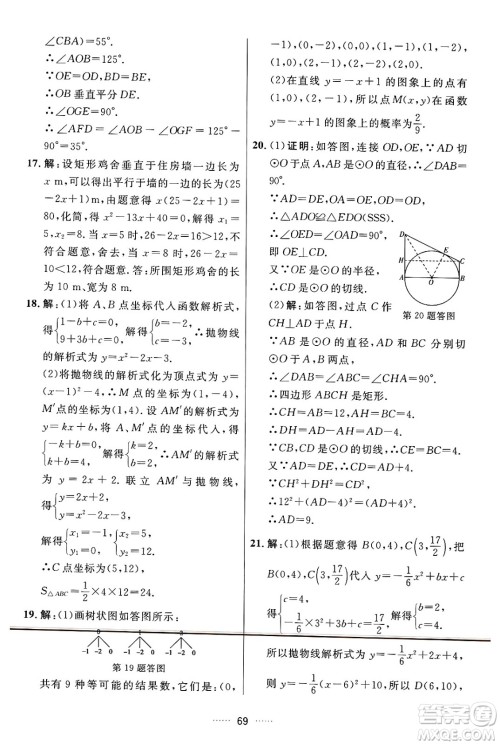 ∠CBA)=55°.
∴∠AOE=110°.
∵OE=OD, BD=BE,
∴OB 垂直平分 DE.
∴∠OGE=90°.
∴∠AFD=∠AOE-∠OGF=110°-90°=20°.
17.解:设矩形鸡舍垂直于住房墙一边长为
x m,可以得出平行于墙的一边的长为(25
-2x+1)m,根据题意得 x(25-2x+1)=
80,化简,得 x²-13x+40=0,解得 x₁=
5,x₂=8.当 x=5 时,26-2x=16>12,不
符合题意,舍去,当 x=8 时,26-2x=
10<12,符合题意.答:所围矩形鸡舍的长
为 10 m,宽为 8 m.
18.解:(1)将 A、B 点坐标代入函数解析式,
得{1-b+c=0, 9+3b+c=0,解得{b=-2, c=-3.∴抛物线
的解析式为 y=x²-2x-3.
(2)将抛物线的解析式化为顶点式为 y=
(x-1)²-4,∴M 点的坐标为(1,-4),
M′点的坐标为(1,4),设 AM′的解析式为
y=kx+b,将 A,M′点的坐标代入,得
{-k+b=0, k+b=4,解得{k=2, b=2.∴AM′的解析式为
y=2x+2.联立 AM′与抛物线,得
{y=2x+2, y=x²-2x-3,解得{x₁=-1, y₁=0,{x₂=5, y₂=12.
∴C 点坐标为(5,12),
S△ABC=1/2×4×12=24.
19.解:(1)画树状图如答图所示:
-1 -2 0 -1 -2 0 -1 -2 0
第 19 题答图
共有 9 种等可能的结果数,它们是(0,
-1),(0,-2),(0,0),(1,-1),(1,-2),
(1,0),(2,-1),(2,-2),(2,0).
(2)在直线 y=-x+1 的图象上的点有
(1,0),(2,-1),所以点 M(x,y)在函数
y=-x+1 的图象上的概率为2/9.
20.(1)证明:如答图,连接 OE,∵AD 切
⊙O于点 A,AB 是⊙O的直径,∴∠DAB=
90°.∵AD=DE,OA=OE,OD=OD,
∴△ADO≌△EDO(SSS).
∴∠OED=∠OAD=90°.
∴OE⊥CD.
∵OE 是⊙O 的半径,
∴CD 是⊙O 的切线.
D E H C A O B
(2)解:如答图,过点 C 作
第 20 题答图
CH⊥AD 于点 H,
∵AB 是⊙O 的直径,AD 和 BC 分别切
⊙O 于 A,B 两点,
∴∠DAB=∠ABC=∠CHA=90°.
∴四边形 ABCH 是矩形.
∴CH=AB=12,AH=BC=4.
∵CD 是⊙O的切线,∴AD=DE,CE=BC.
∴DH=AD-BC=AD-4,CD=AD+4.
∵CH²+DH²=CD²,
∴12²+(AD-4)²=(AD+4)².
∴AD=9.
21.解:(1)根据题意得 B(0,4),C(3,17/2),
把 B(0,4),C(3,17/2)代入 y=-1/6x²+bx+c,
得{c=4, -1/6×3²+3b+c=17/2,解得{b=2, c=4.
所以抛物线解析式为 y=-1/6x²+2x+4,
则 y=-1/6(x-6)²+10,所以 D(6,10),
69